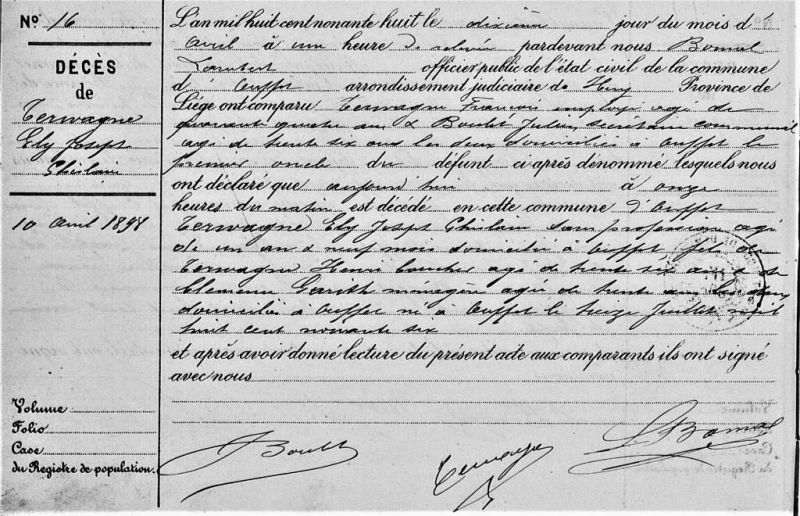 No 16
DÉCÈS
de
Terwagne
Ely Joseph
Ghilain
10 Avril 1898
Volume
Folio
Case
du Registre de population.
L'an mil huit cent nonante huit le dixième jour du mois d'
Avril à une heure de relevée pardevant nous Bomal
Lambert officier public de l'état civil de la commune
d' Ouffet arrondissement judiciaire de Huy Province de
Liège ont comparu Terwagne François employé agé de
quarante quatre ans & Boulet Julien, secrétaire communal
agé de trente six ans les deux domiciliés à Ouffet le
premier oncle du défunt ci-après dénommé lesquels nous
ont déclaré que aujourd'hui à onze
heures du matin est décédé en cette commune d'Ouffet
Terwagne Ely Joseph Ghilain sans profession agé
de un an & neuf mois domicilié à Ouffet fils de
Terwagne Henri boucher agé de trente six ans & de
Clémence ménagère agée de trente ans les deux
domiciliés à Ouffet né à Ouffet le treize Juillet mil
huit cent nonante six
et après avoir donné lecture du présent acte aux comparants ils ont signé
avec nous
J Boulet
Terwagne
L Bomal